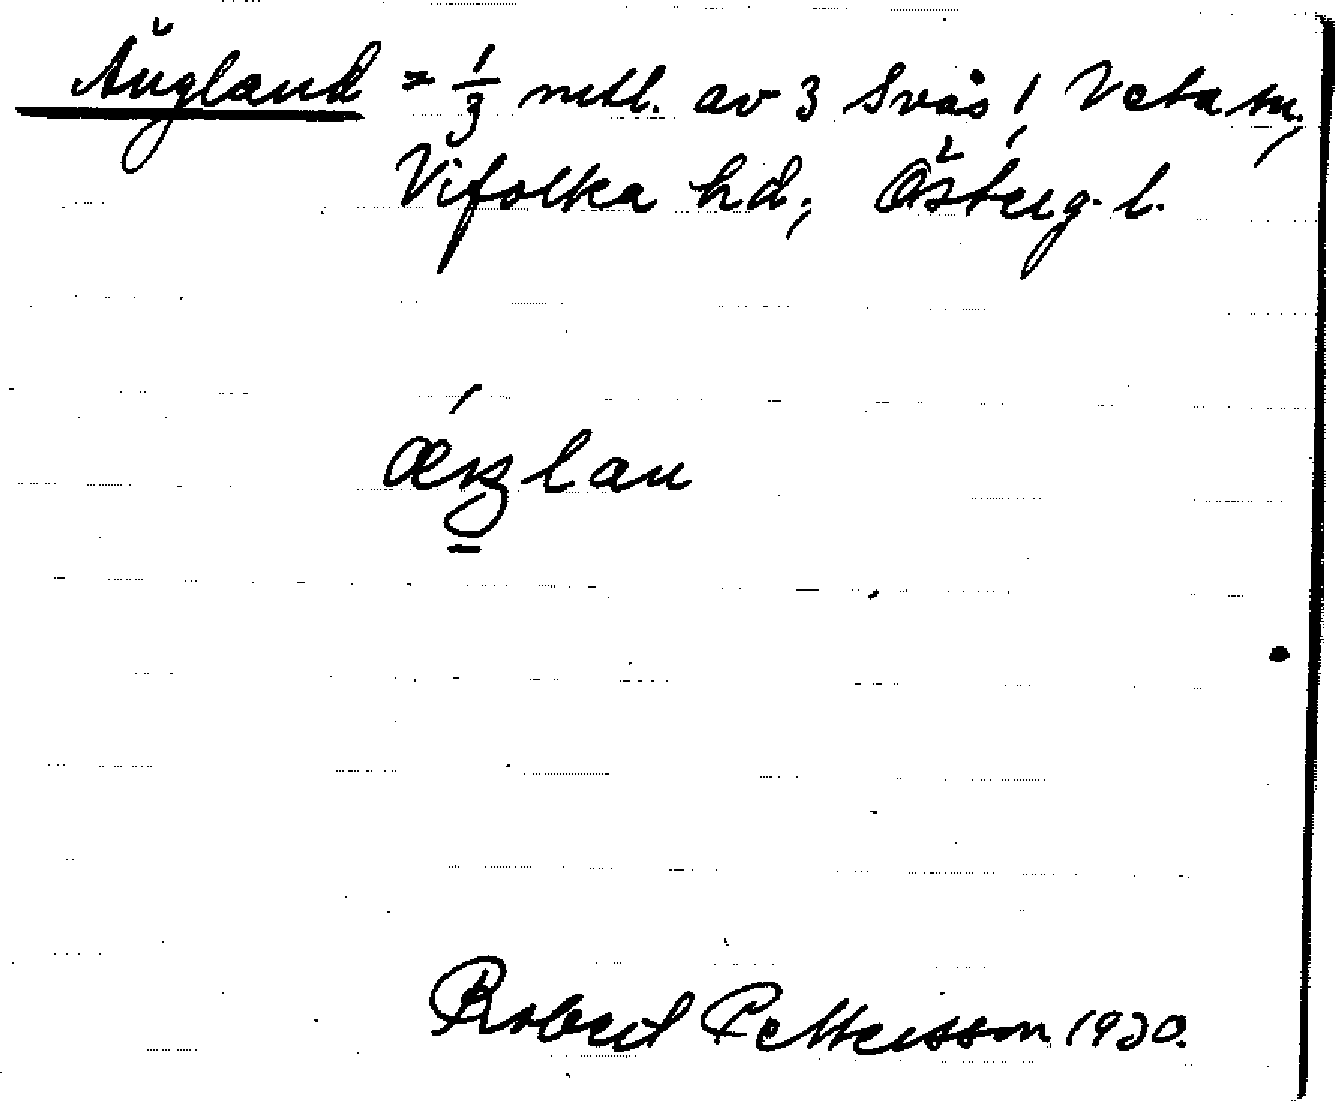 Ängland = 1/3 mtl. av 3 Svås i Veta sn,
Vifolka hd, Österg. l.
Robert Pettersson 1930.